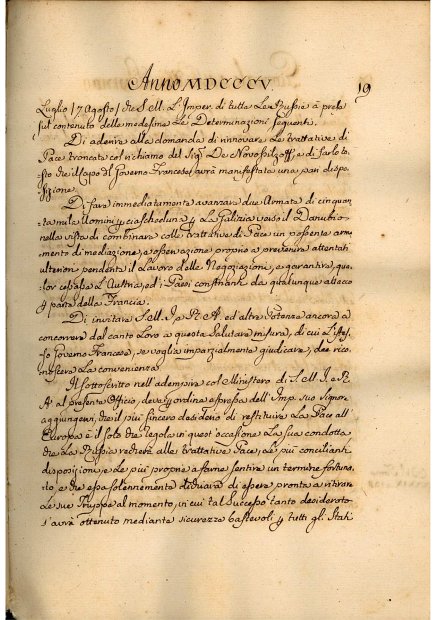 Anno MDCCCV. 19
Luglio / 7 Agosto / che S. M. L'Imper. di tutte Le Russie à prese
sul contenuto delle medesime Le Determinazioni seguenti.
Di aderire alla domanda di rinnovare Le trattative di
Pace troncate col richiamo del Sig.r De Novossilzoff, e di farlo to-
sto che il Capo del Governo Francese avrà manifestata una pari dispo-
sizione.
Di fare immediatamente avanzare due Armate di cinquan-
tamila Uomini per ciascheduna per La Galizia verso il Danubio
nella vista di combinare colle trattative di Pace un possente arma-
mento di mediazione, e osservazione proprio a prevenire attentati
ulteriori pendente il Lavoro delle Negoziazioni, e garantire, qua-
lor cessasse L'Austria, ed i Paesi confinanti da qualunque attacco
per parte della Francia.
Di invitare S. M. I. e R. A. ed altre Potenze ancora a
concorrere dal canto Loro a questa Salutare misura, di cui L'istes-
so Governo Francese, se voglia imparzialmente giudicare, dee rico-
noscere La convenienza.
Il sottoscritto nell'adempire col Ministero di S. M. I. e R.
A. al presente Officio, deve per ordine espresso dell'Imp. suo Signore
aggiungere, che il più sincero desiderio di restituire La Pace all'
Europa è il solo che regola in quest'occasione La sua condotta
che La Russia recherà alle trattative Pace, Le più concilianti
disposizioni, e Le più proprie a farne sentire un termine fortuna-
to, e che essa solennemente dichiara di essere pronta a ritirare
Le sue Truppe al momento, in cui tal Successo tanto desiderato
s'avrà ottenuto mediante sicurezze bastevoli per tutti gli Stati